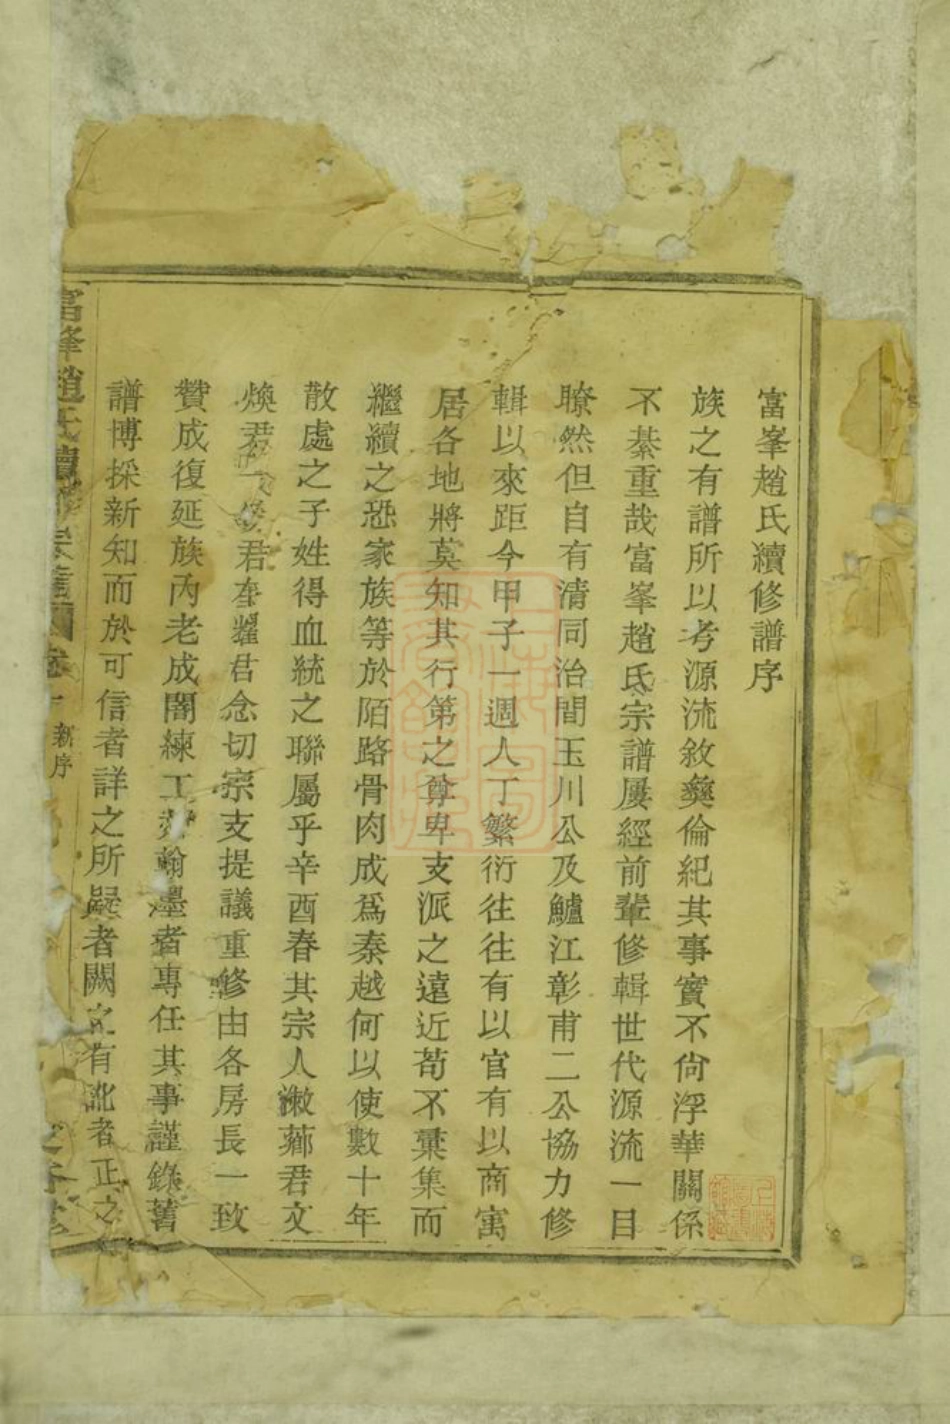 富峯趙氏續修譜序
族之有譜所以考源流敘彝倫紀其事實不尙浮華關係
不綦重哉富峯趙氏宗譜屢經前輩修輯世代源流一目
瞭然但自有清同治間玉川公及鱸江彰甫二公協力修
輯以來距今甲子一週人丁繁衍往往有以官有以商寓
居各地將莫知其行第之尊卑支派之遠近苟不彙集而
繼續之恐家族等於陌路骨肉成爲秦越何以使數十年
散處之子姓得血統之聯屬乎辛酉春其宗人漱薌君文
煥君君奎耀君念切宗支提議重修由各房長一致
贊成復延族內老成闇練工於翰墨者專任其事謹錄舊
譜博採新知而於可信者詳之所疑者闕之有訛者正之
富峯趙氏續 卷首
新序